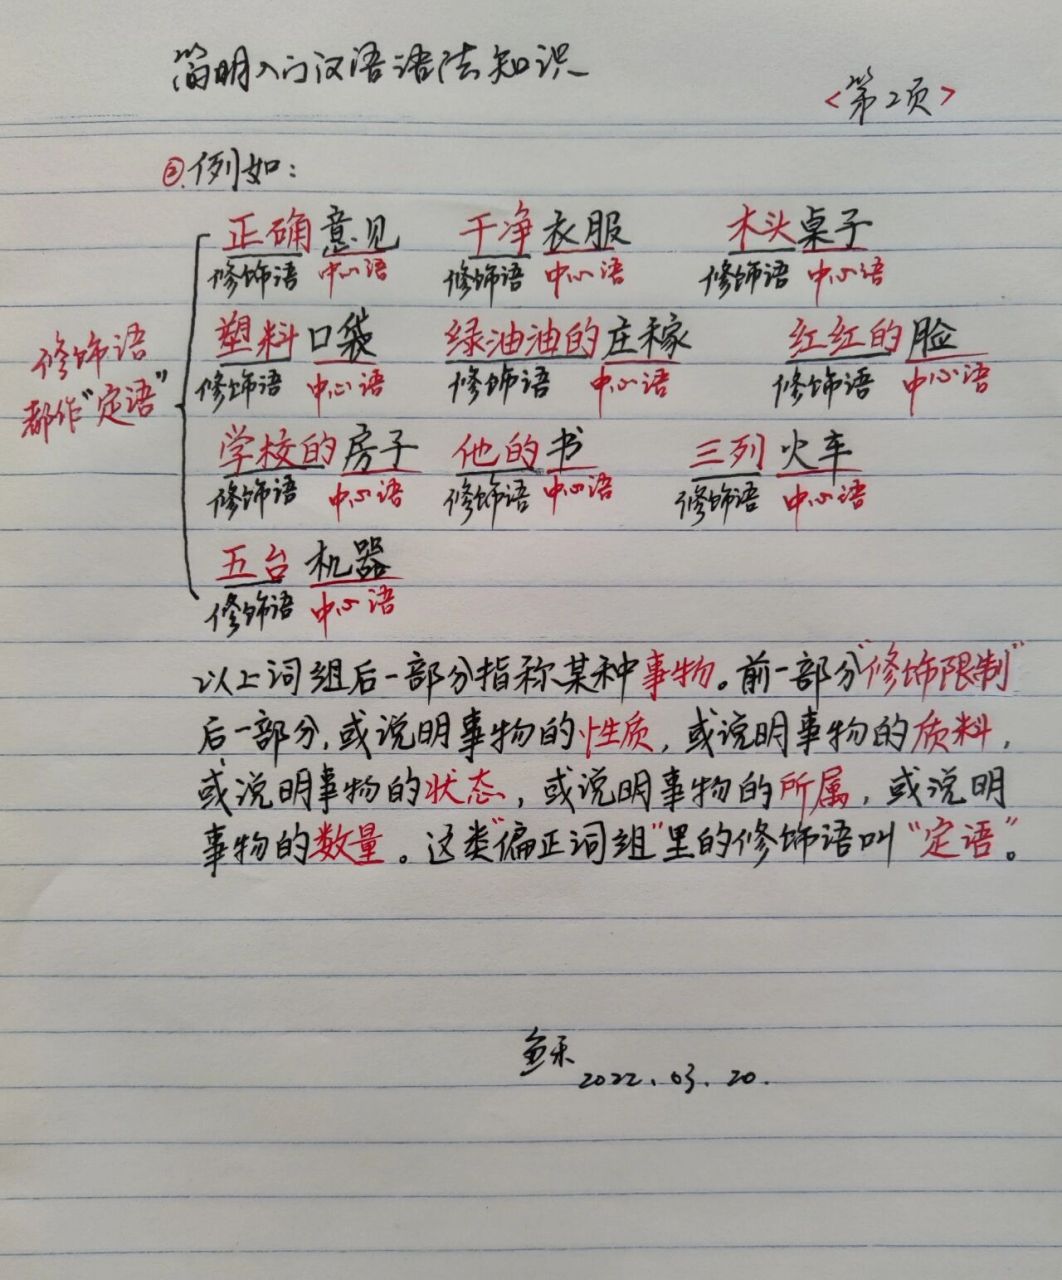 简明入门汉语语法知识
<第2页>
②.例如：
正确意见 干净衣服 木头桌子
修饰语 中心语 修饰语 中心语 修饰语 中心语
塑料口袋 绿油油的庄稼 红红的脸
修饰语 中心语 修饰语 中心语 修饰语 中心语
修饰语
都作"定语"
学校的房子 他的书 三列火车
修饰语 中心语 修饰语 中心语 修饰语 中心语
五台机器
修饰语 中心语
以上词组后一部分指称某种事物。前一部分"修饰限制"
后一部分,或说明事物的性质，或说明事物的质料，
或说明事物的状态，或说明事物的所属，或说明
事物的数量。这类"偏正词组"里的修饰语叫"定语"。
2022.03.20.